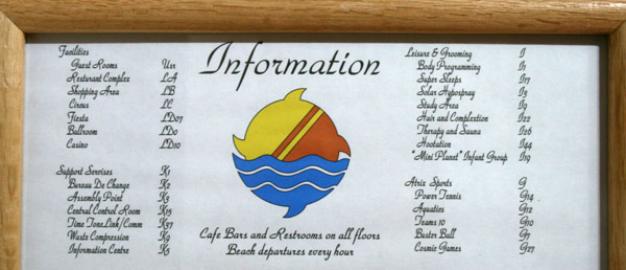 Information
Facilities
Guest Rooms Uxx
Resturant Complex LA
Shopping Area LB
Circus LC
Fiesta LD07
Ballroom LD0
Casino LD10
Support Services K1
Bureau De Change K2
Assembly Point K3
Central Control Room K15
Time Tone Link/Comm K37
Waste Compression K9
Information Centre K5
Leisure & Grooming I
Body Programming I1
Super Sleeps I17
Solar Hyperspray I3
Study Area I9
Hair and Complextion I22
Therapy and Sauna I26
Hootation I44
"Mini Planet" Infant Group I19
Atrix Sports G
Power Tennis G14
Aquatics G12
Teams 10 G10
Buster Ball G7
Cosmic Games G27
Cafe Bars and Restrooms on all floors
Beach departures every hour